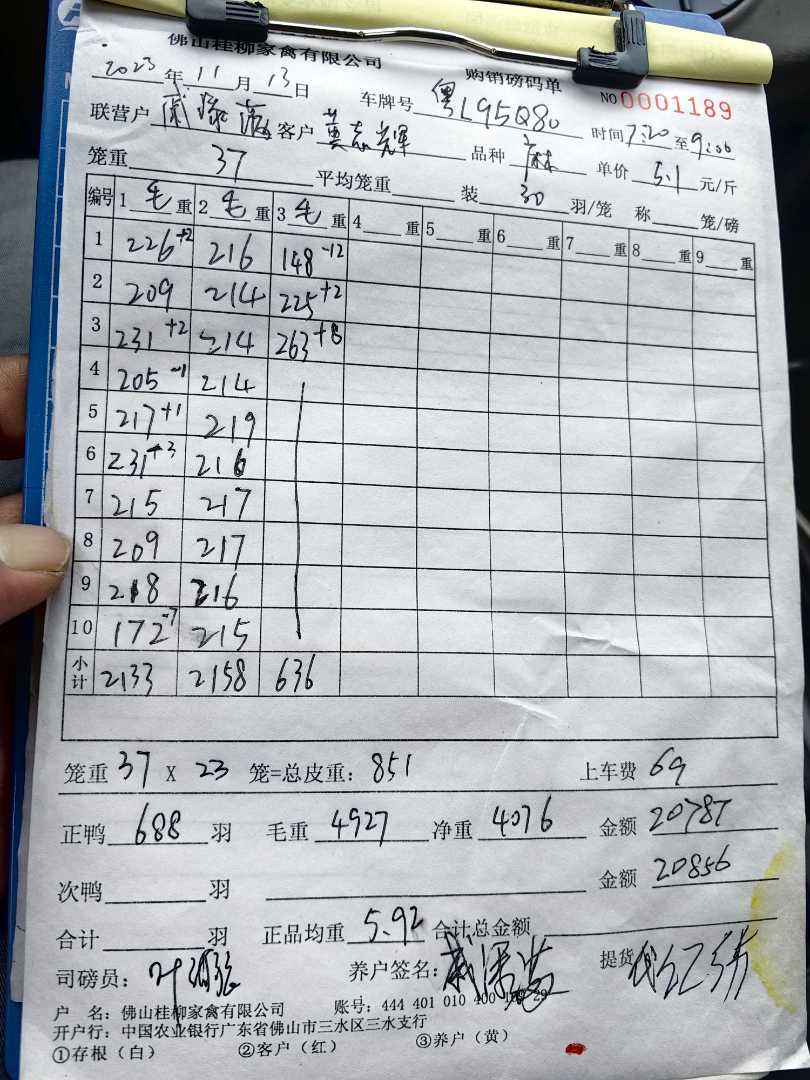 佛山桂柳家禽有限公司 购销磅码单
2023年11月13日 车牌号 粤L95Q80 NO 0001189
联营户 客户 黄志辉 品种 麻 时间7:20至9:00
笼重 37 平均笼重 装 30 羽/笼 称 笼/磅 单价 5.1 元/斤
编号 1 毛 重 2 毛 重 3 毛 重 4 重 5 重 6 重 7 重 8 重 9 重
1 226+2 216 148-12
2 209 214 225+2
3 231+2 214 263+8
4 205-1 214
5 217+1 219
6 231+3 216
7 215 217
8 209 217
9 218 216
10 172-7 215
小计 2133 2158 636
笼重 37 X 23 笼=总皮重: 851 上车费 69
正鸭 688 羽 毛重 4927 净重 4076 金额 20787
次鸭 羽 金额 20856
合计 羽 正品均重 5.92 合计总金额
司磅员: 养户签名: 提货
户 名: 佛山桂柳家禽有限公司 账号: 444 401 010 400
开户行: 中国农业银行广东省佛山市三水区三水支行
①存根(白) ②客户(红) ③养户(黄)